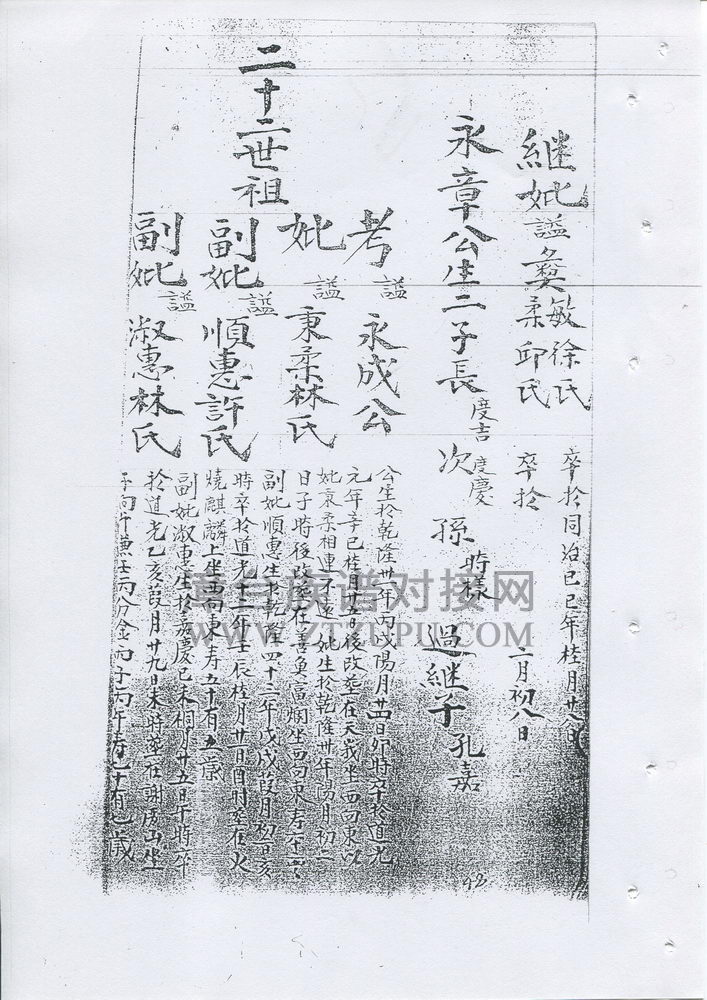 継妣諡彝敏徐氏 卒於同治己巳年桂月廿八日
柔邱氏 卒於二月初八日
永章公生二子長度吉次度慶孫時樣過継子孔嘉
二十二世祖
考諡永成公
妣諡秉柔林氏
副妣諡順惠許氏
副妣諡淑惠林氏
公生於乾隆卅一年丙戌陽月廿四日卯時卒於道光
元年辛巳桂月廿五日後改塟在天我坐西向東以
妣秉柔相連不遠妣生於乾隆卅年陽月初一
日子時後改塟在善魚窟烟坐西向東寿六十
副妣順惠生於乾隆四十三年戊戌葭月初一日亥
時卒於道光十二年壬辰桂月廿日酉時塟在火
燒麒麟上坐西向東寿五十有五歲
副妣淑惠生於嘉慶己未桐月廿五日午時卒
於道光乙亥葭月廿九日未時塟在謝厝山坐
向午兼壬丙分金丙子丙午寿七十有七歲
92
臺台族谱对接网
WWW.ZTZUPU.COM